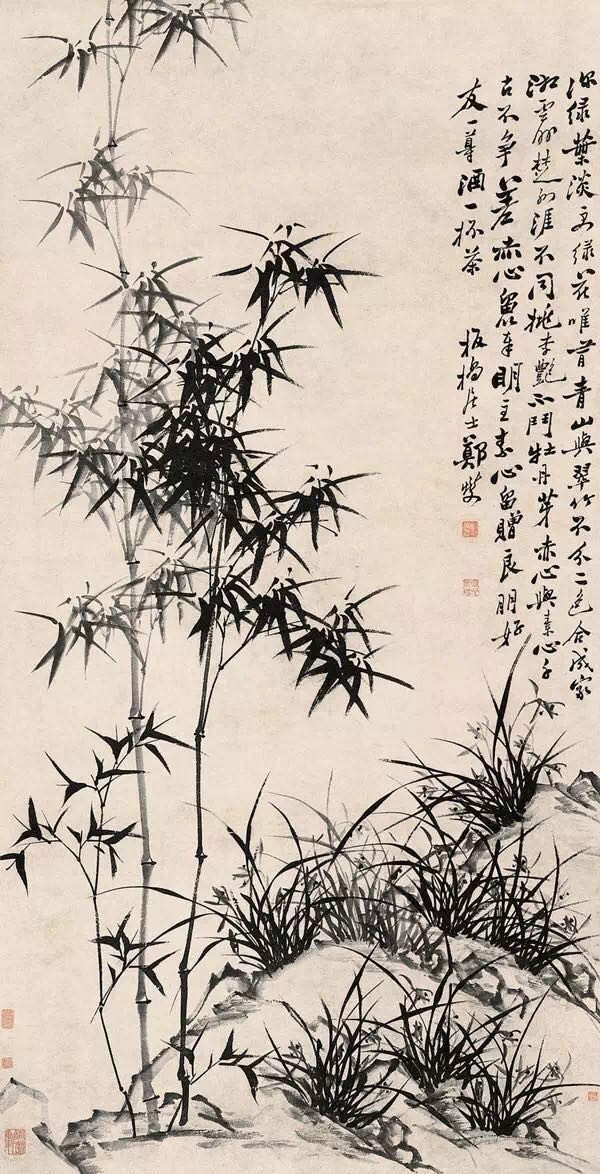 深緑葉淡緑花唯青山與翠竹不分二色合成家
湘雲外楚涯不同桃李艷不鬥牡丹芽赤心與素心千
古不爭差赤心留奉明主素心留贈良朋好
友一尊酒一杯茶 板橋居士鄭燮